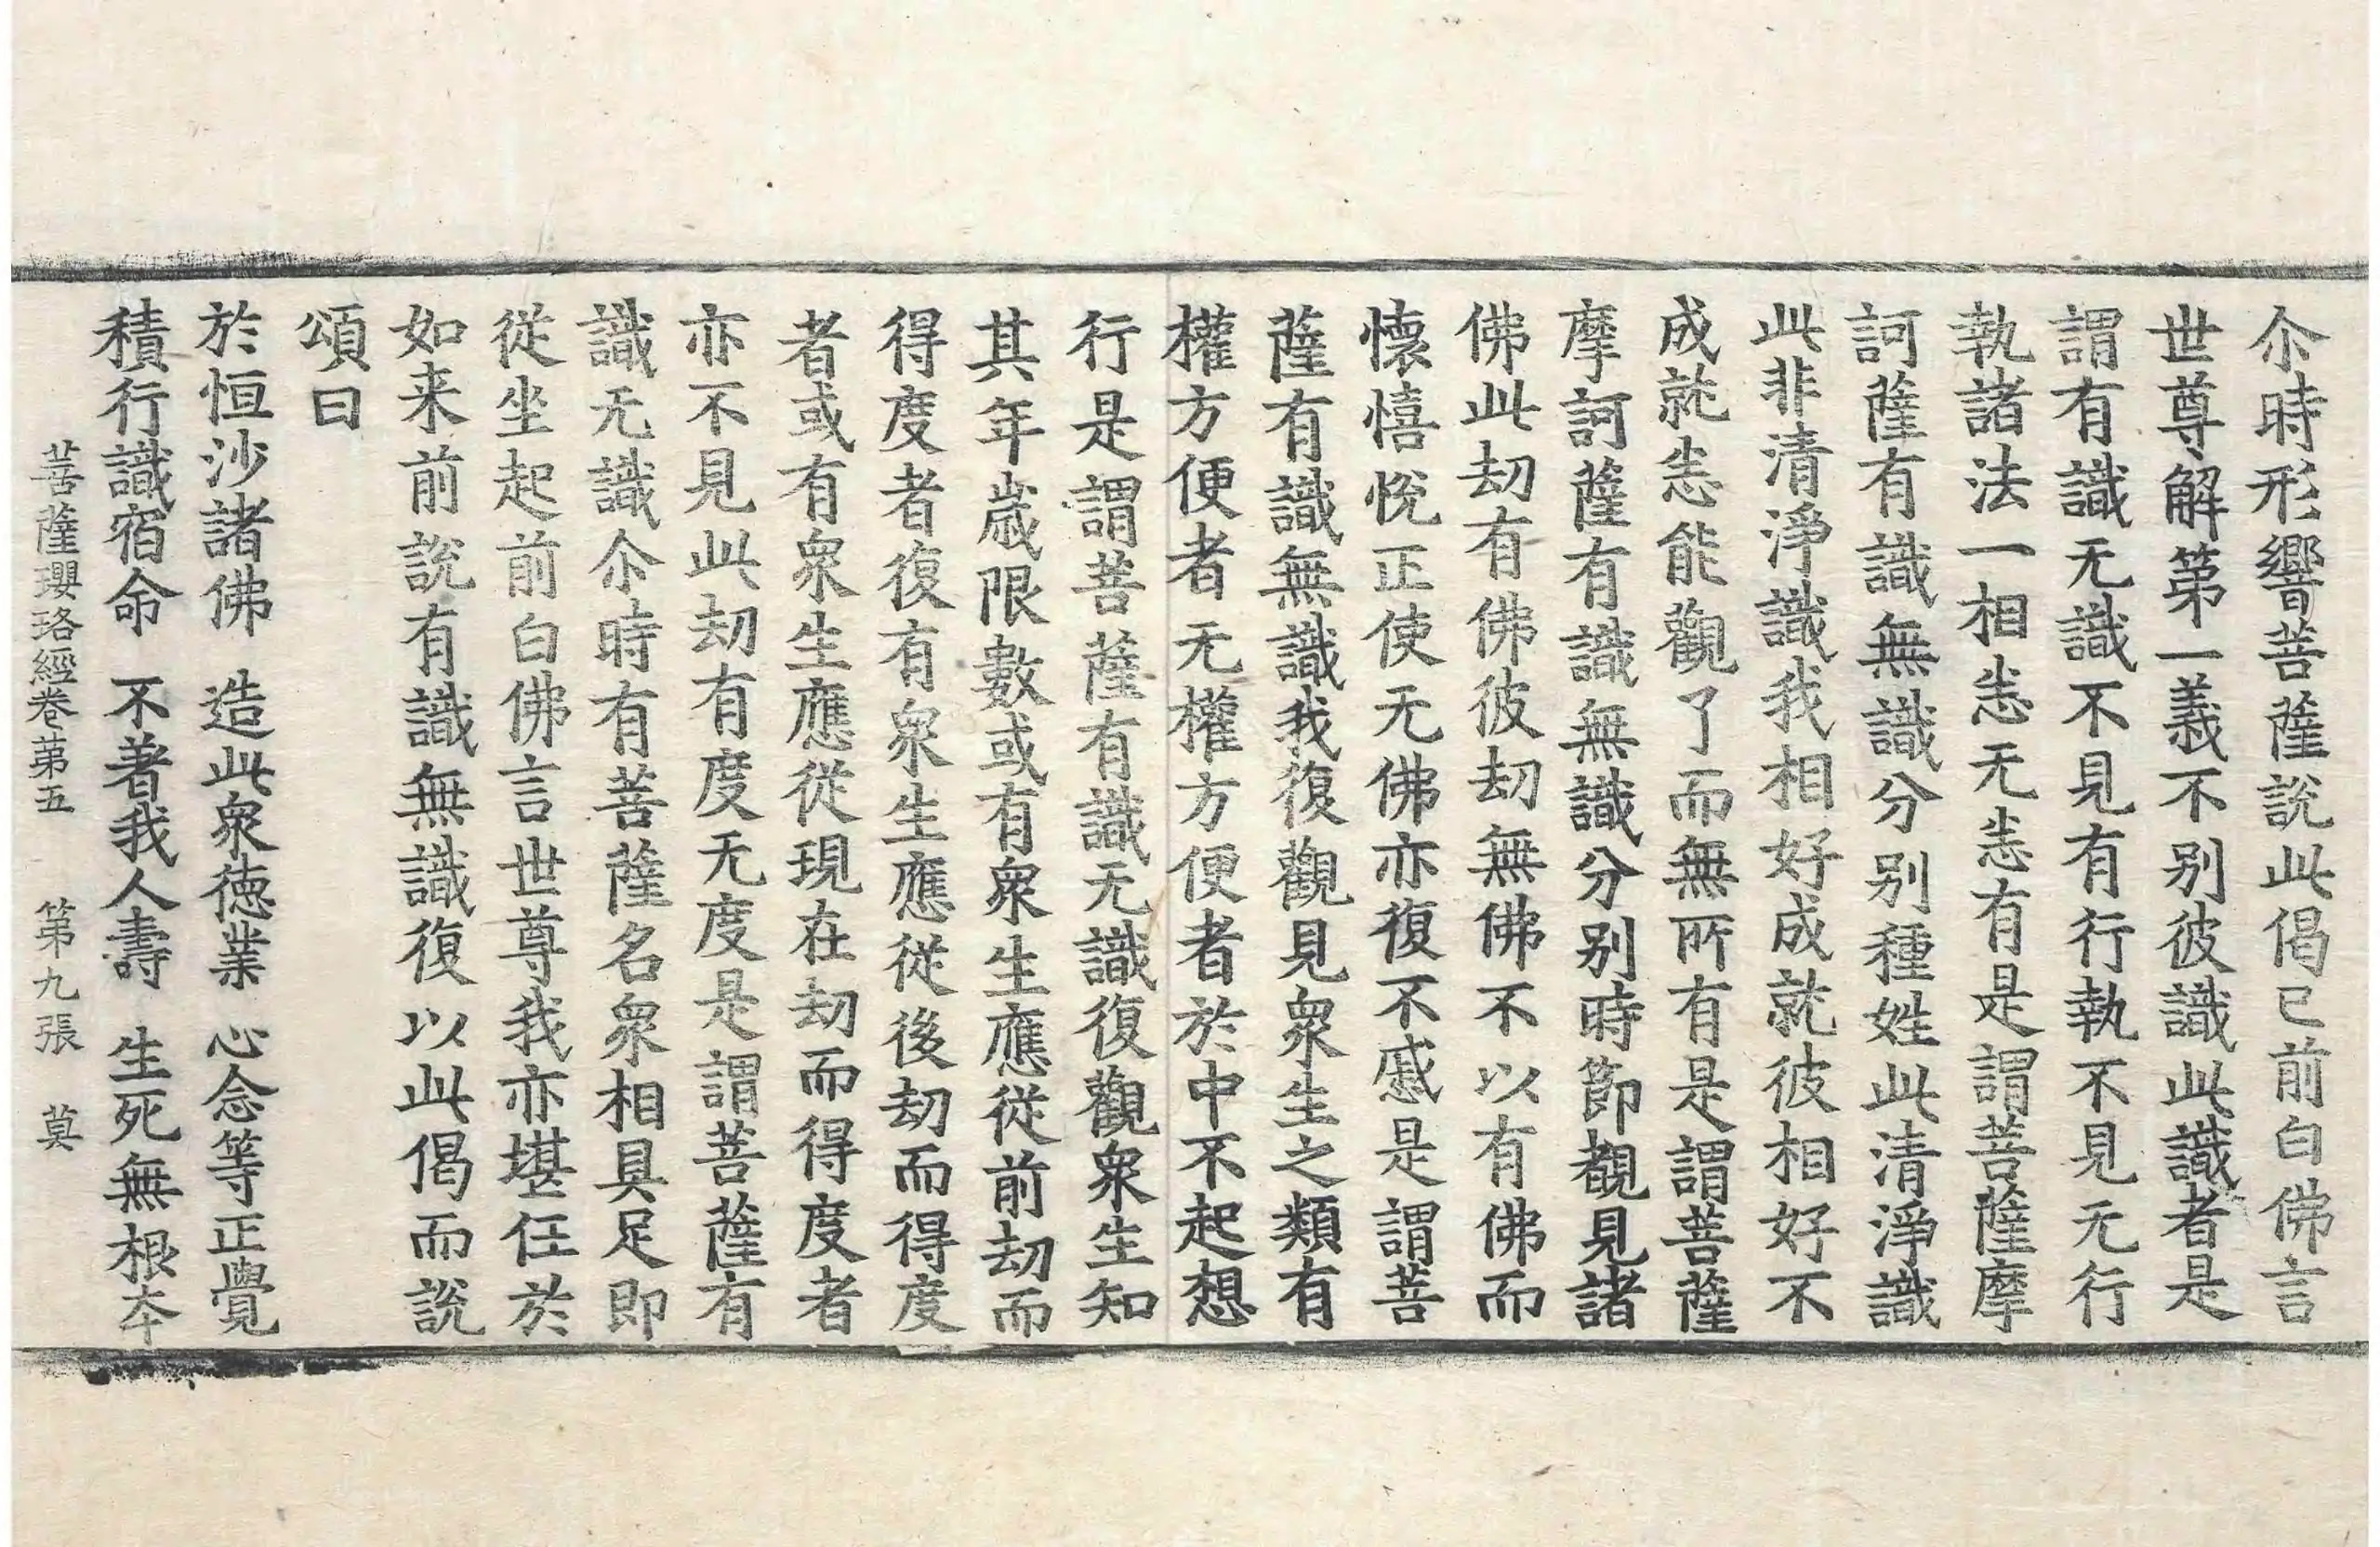 尒時形響菩薩說此偈已前白佛言
世尊解第一義不別彼識此識者是
謂有識无識不見有行執不見无行
執諸法一相恙无恙有是謂菩薩摩
訶薩有識無識分別種姓此清淨識
此非清淨識我相好成就彼相好不
成就恙能觀了而無所有是謂菩薩
摩訶薩有識無識分別時節觀見諸
佛此劫有佛彼劫無佛不以有佛而
懷憘悅正使无佛亦復不慼是謂菩
薩有識無識我復觀見衆生之類有
權方便者无權方便者於中不起想
行是謂菩薩有識无識復觀衆生知
其年歲限數或有衆生應從前劫而
得度者復有衆生應從後劫而得度
者或有衆生應從現在劫而得度者
亦不見此劫有度无度是謂菩薩有
識无識尒時有菩薩名衆相具足即
從坐起前白佛言世尊我亦堪任於
如来前說有識無識復以此偈而說
頌曰
於恒沙諸佛　造此衆德業　心念等正覺
積行識宿命　不著我人壽　生死無根夲
菩薩瓔珞經卷第五　第九張　莫